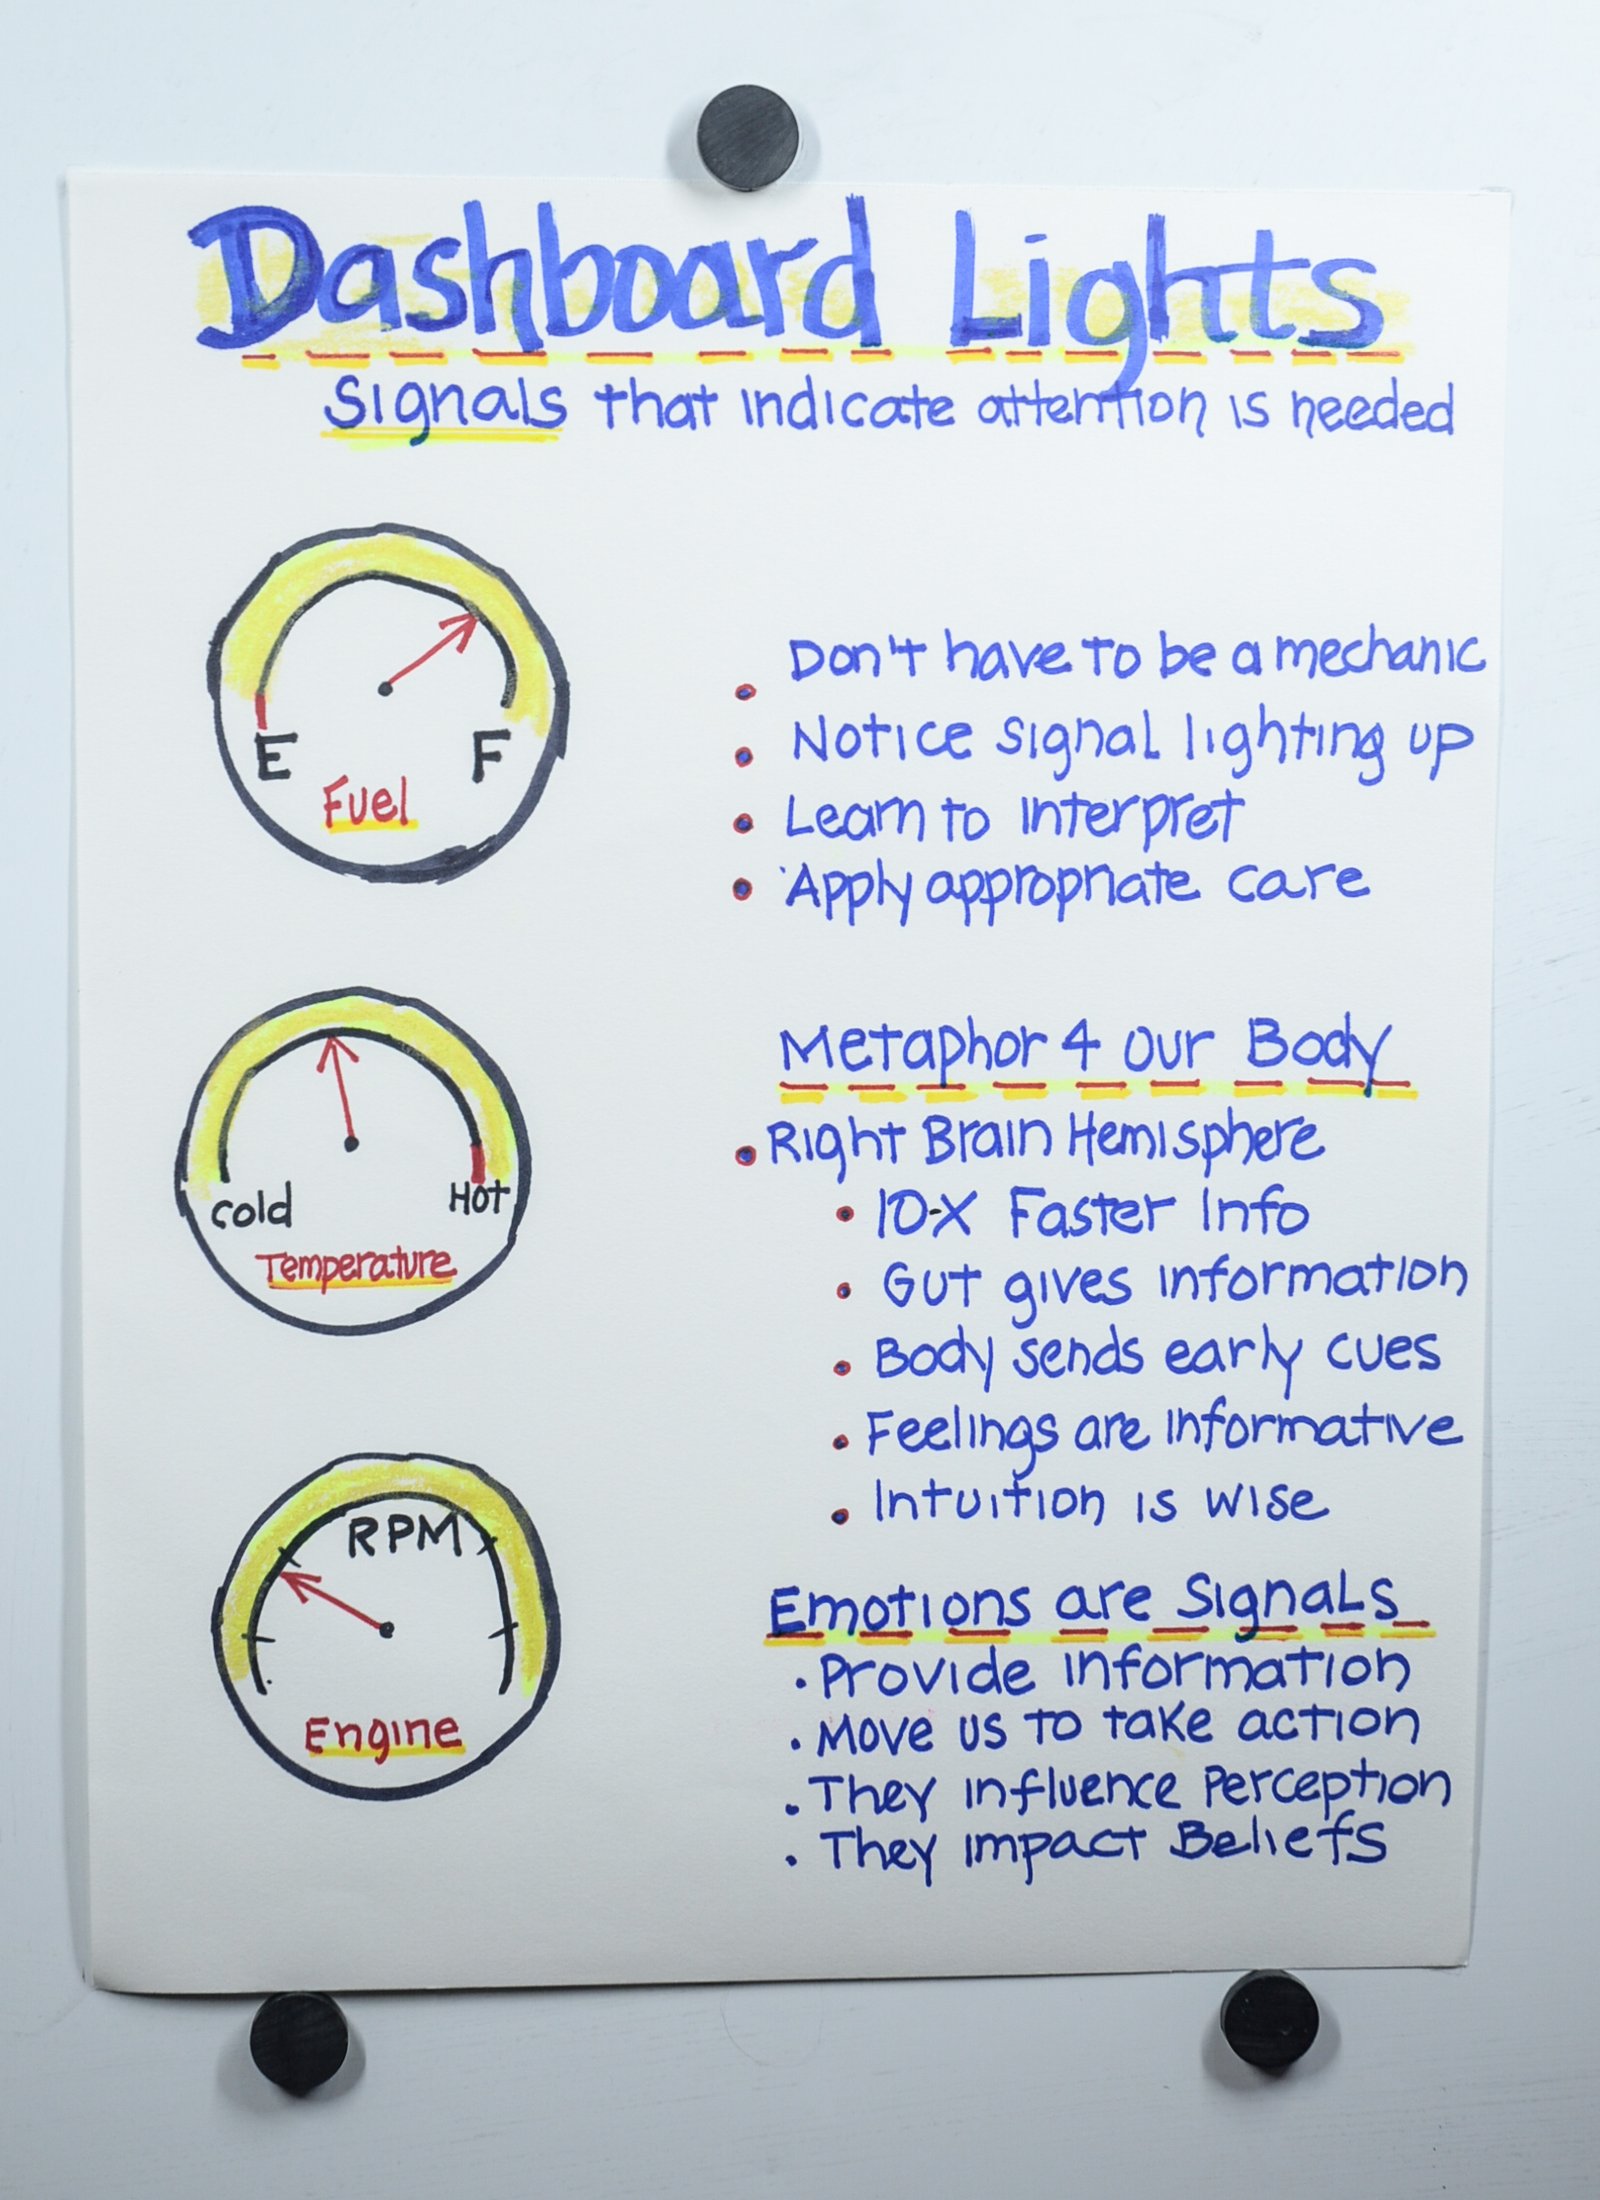 Dashboard Lights
Signals that indicate attention is needed
E F
Fuel
• Don't have to be a mechanic
• Notice signal lighting up
• Learn to interpret
• Apply appropriate care
Cold Hot
Temperature
Metaphor 4 our Body
• Right Brain Hemisphere
• 10-X Faster Info
• Gut gives information
• Body sends early cues
• Feelings are informative
• Intuition is wise
RPM
Engine
Emotions are Signals
• Provide information
• Move us to take action
• They influence Perception
• They impact Beliefs